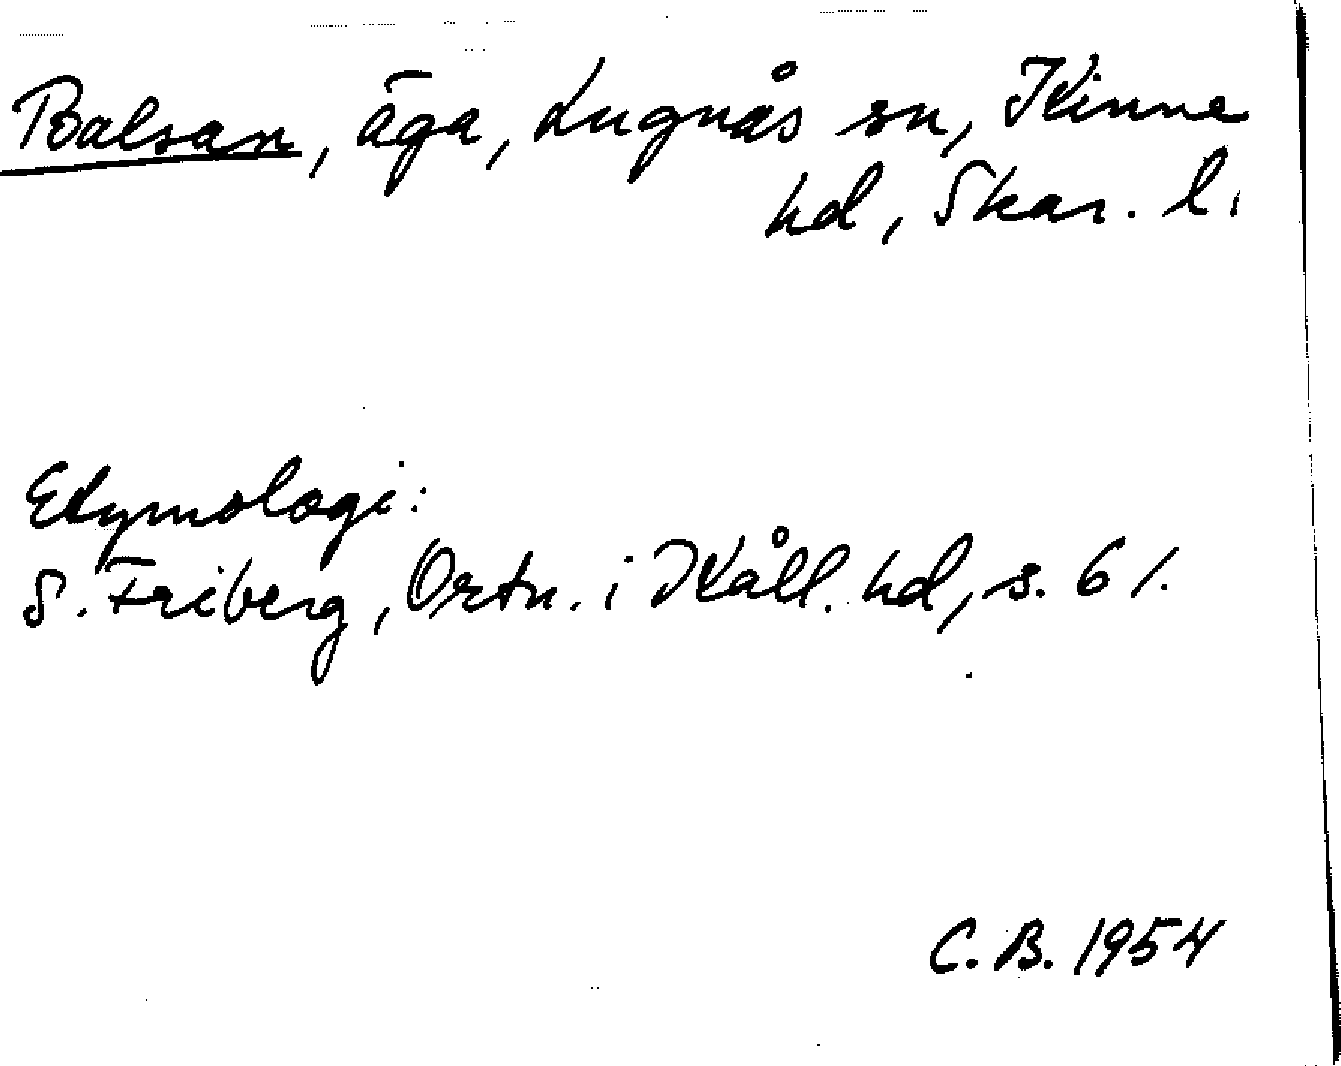 Balsan, äga, Lugnås sn, Kinne
hd, Skar. l.
Etymologi:
S. Friberg, Ortn. i Kåll. hd, s. 61.
C. B. 1954